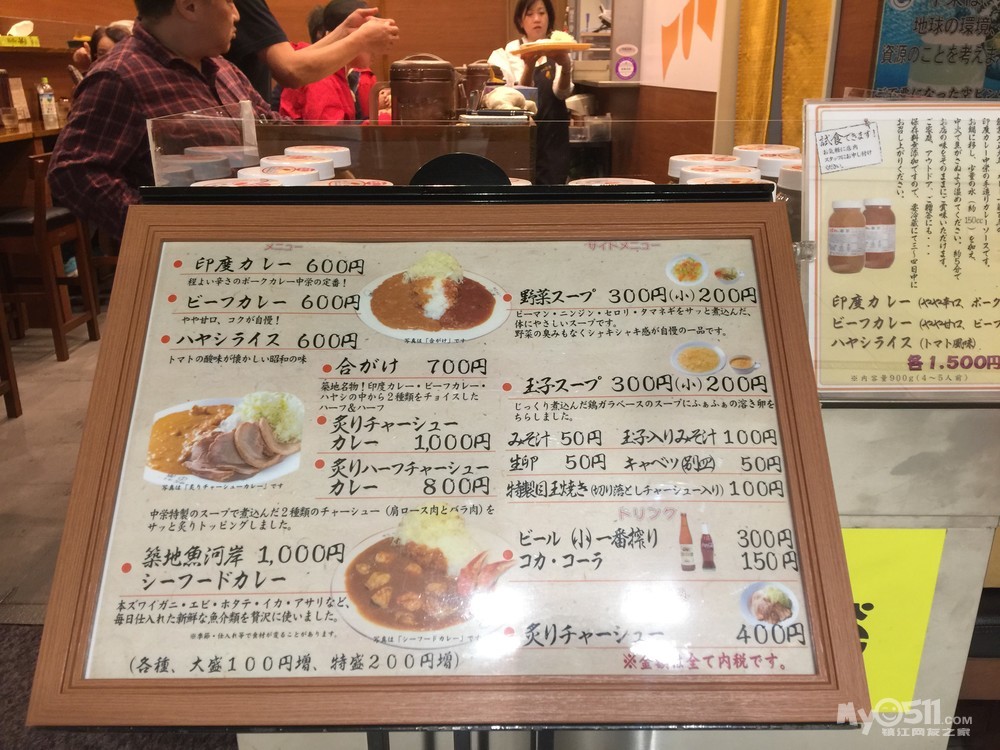 メニュー
印度カレー 600円
程よい辛さのポークカレー中栄の定番！
ビーフカレー 600円
やや甘口、コクが自慢！
ハヤシライス 600円
トマトの酸味が懐かしい昭和の味
合がけ 700円
築地名物！印度カレー・ビーフカレー・
ハヤシの中から２種類をチョイスした
ハーフ＆ハーフ
炙りチャーシュー
カレー 1,000円
炙りハーフチャーシュー
カレー 800円
写真は「合がけ」です
写真は「炙りチャーシューカレー」です
中栄特製のスープで煮込んだ２種類のチャーシュー（肩ロース肉とバラ肉）を
サッと炙りトッピングしました。
築地魚河岸 1,000円
シーフードカレー
本ズワイガニ・エビ・ホタテ・イカ・アサリなど、
毎日仕入れた新鮮な魚介類を贅沢に使いました。
※季節・仕入れ等で食材が変ることがあります。
写真は「シーフードカレー」です
(各種、大盛１００円増、特盛２００円増)
サイドメニュー
野菜スープ 300円(小)200円
ピーマン・ニンジン・セロリ・タマネギをサッと煮込んだ、
体にやさしいスープです。
野菜の臭みもなくシャキシャキ感が自慢の一品です。
玉子スープ 300円(小)200円
じっくり煮込んだ鶏ガラベースのスープにふぁふぁの溶き卵を
ちらしました。
みそ汁 50円 玉子入りみそ汁 100円
生卵 50円 キャベツ(別皿) 50円
特製目玉焼き(切り落としチャーシュー入り) 100円
ドリンク
ビール (小) 一番搾り 300円
コカ・コーラ 150円
炙りチャーシュー 400円
は全て内税です。
試食できます！
お気軽に店内
スタッフにお申し付け
ください。
印度カレー・中栄の手造りカレーソースです。
お鍋に移し、少量の水（約150cc）を加え、
中火で焦がさぬよう温めてください。約5分で
お店の味をそのままにご賞味いただけます。
ご家庭、アウトドア、ご贈答にも・・
保存料無添加ですので、要冷蔵にて3〜4日中に
お召し上がりください。
印度カレー（やや辛口、ポーク
ビーフカレー（やや甘口、ビーフ
ハヤシライス（トマト風味）
各1,500円
※内容量900g(4〜5人前)
地球の環境
資源のことを考え
MyO511.COM
镇江网友之家